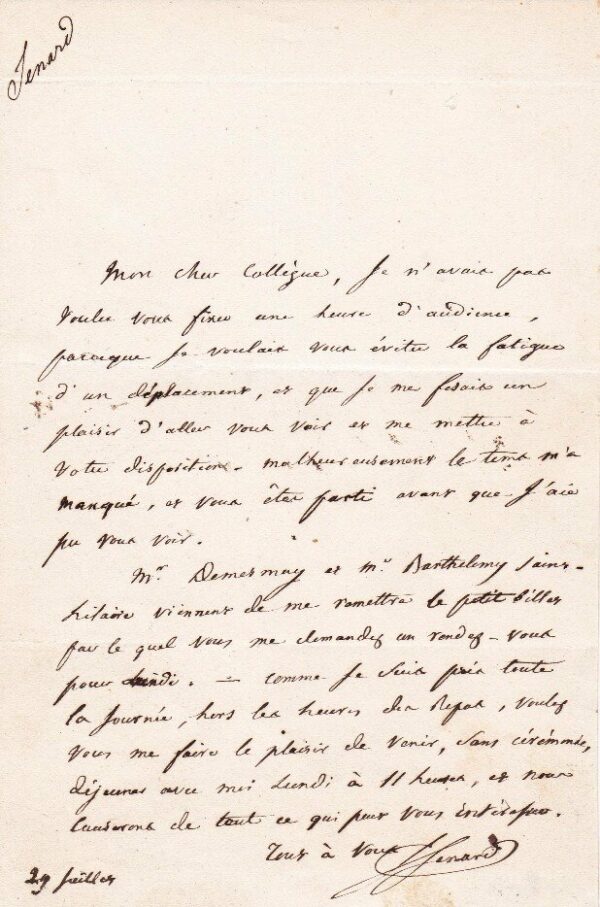 Senard
Mon cher Collègue, je n'avais pas
voulu vous fixer une heure d'audience,
parceque je voulais vous éviter la fatigue
d'un déplacement, et que je me fesais un
plaisir d'aller vous voir et me mettre à
votre disposition. malheureusement le tems m'a
manqué, et vous êtes parti avant que j'aie
pu vous voir.
Mr. Demesmay et Mr. Barthelemy Saint-
hilaire viennent de me remettre le petit billet
par le quel vous me demandez un rendez-vous
pour lundi. — comme je suis pris toute
la journée, hors les heures des repas, voulez
vous me faire le plaisir de venir, sans cérémonie,
déjeuner avec moi lundi à 11 heures, et nous
causerons de tout ce qui peut vous intéresser.
Tout à vous
Senard
29 juillet